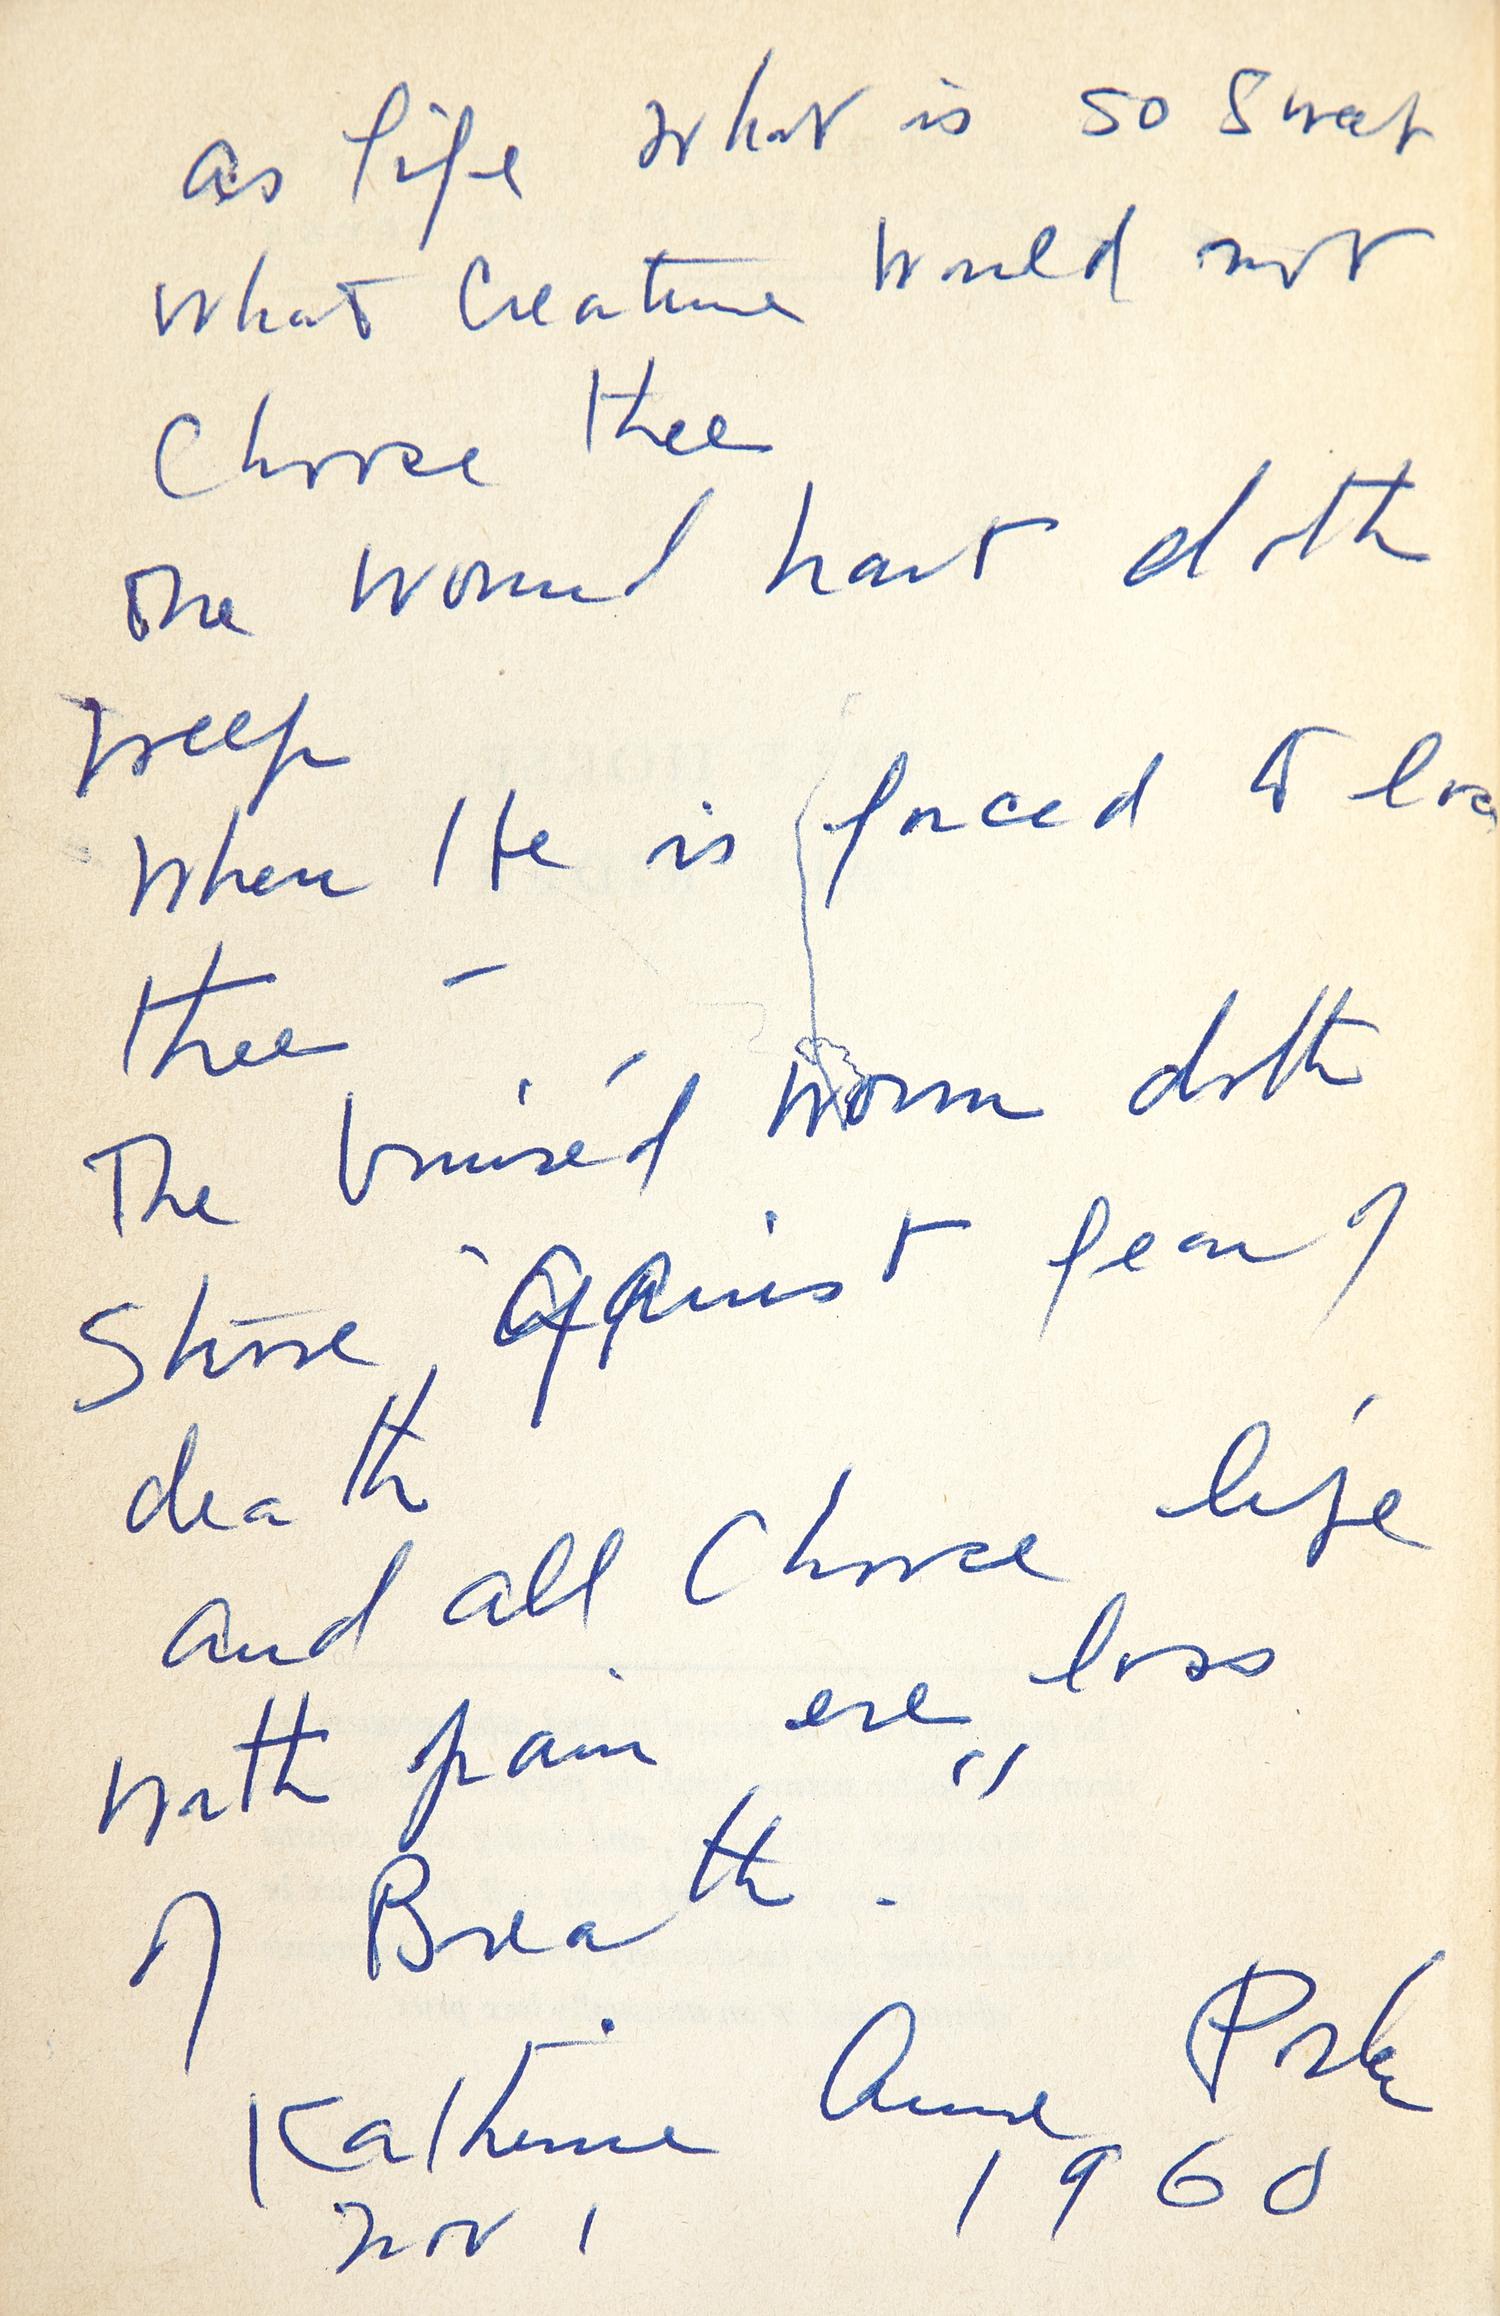 as life what is so Sweet
what Creature would not
Choose thee
The wound hart doth
weep
When He is forced to
thee –
The bruiséd worm doth
Strive against fear of
death
and all Choose life
with pain ere loss
of Breath.
Katherine Anne Porter
Nov 1 1960